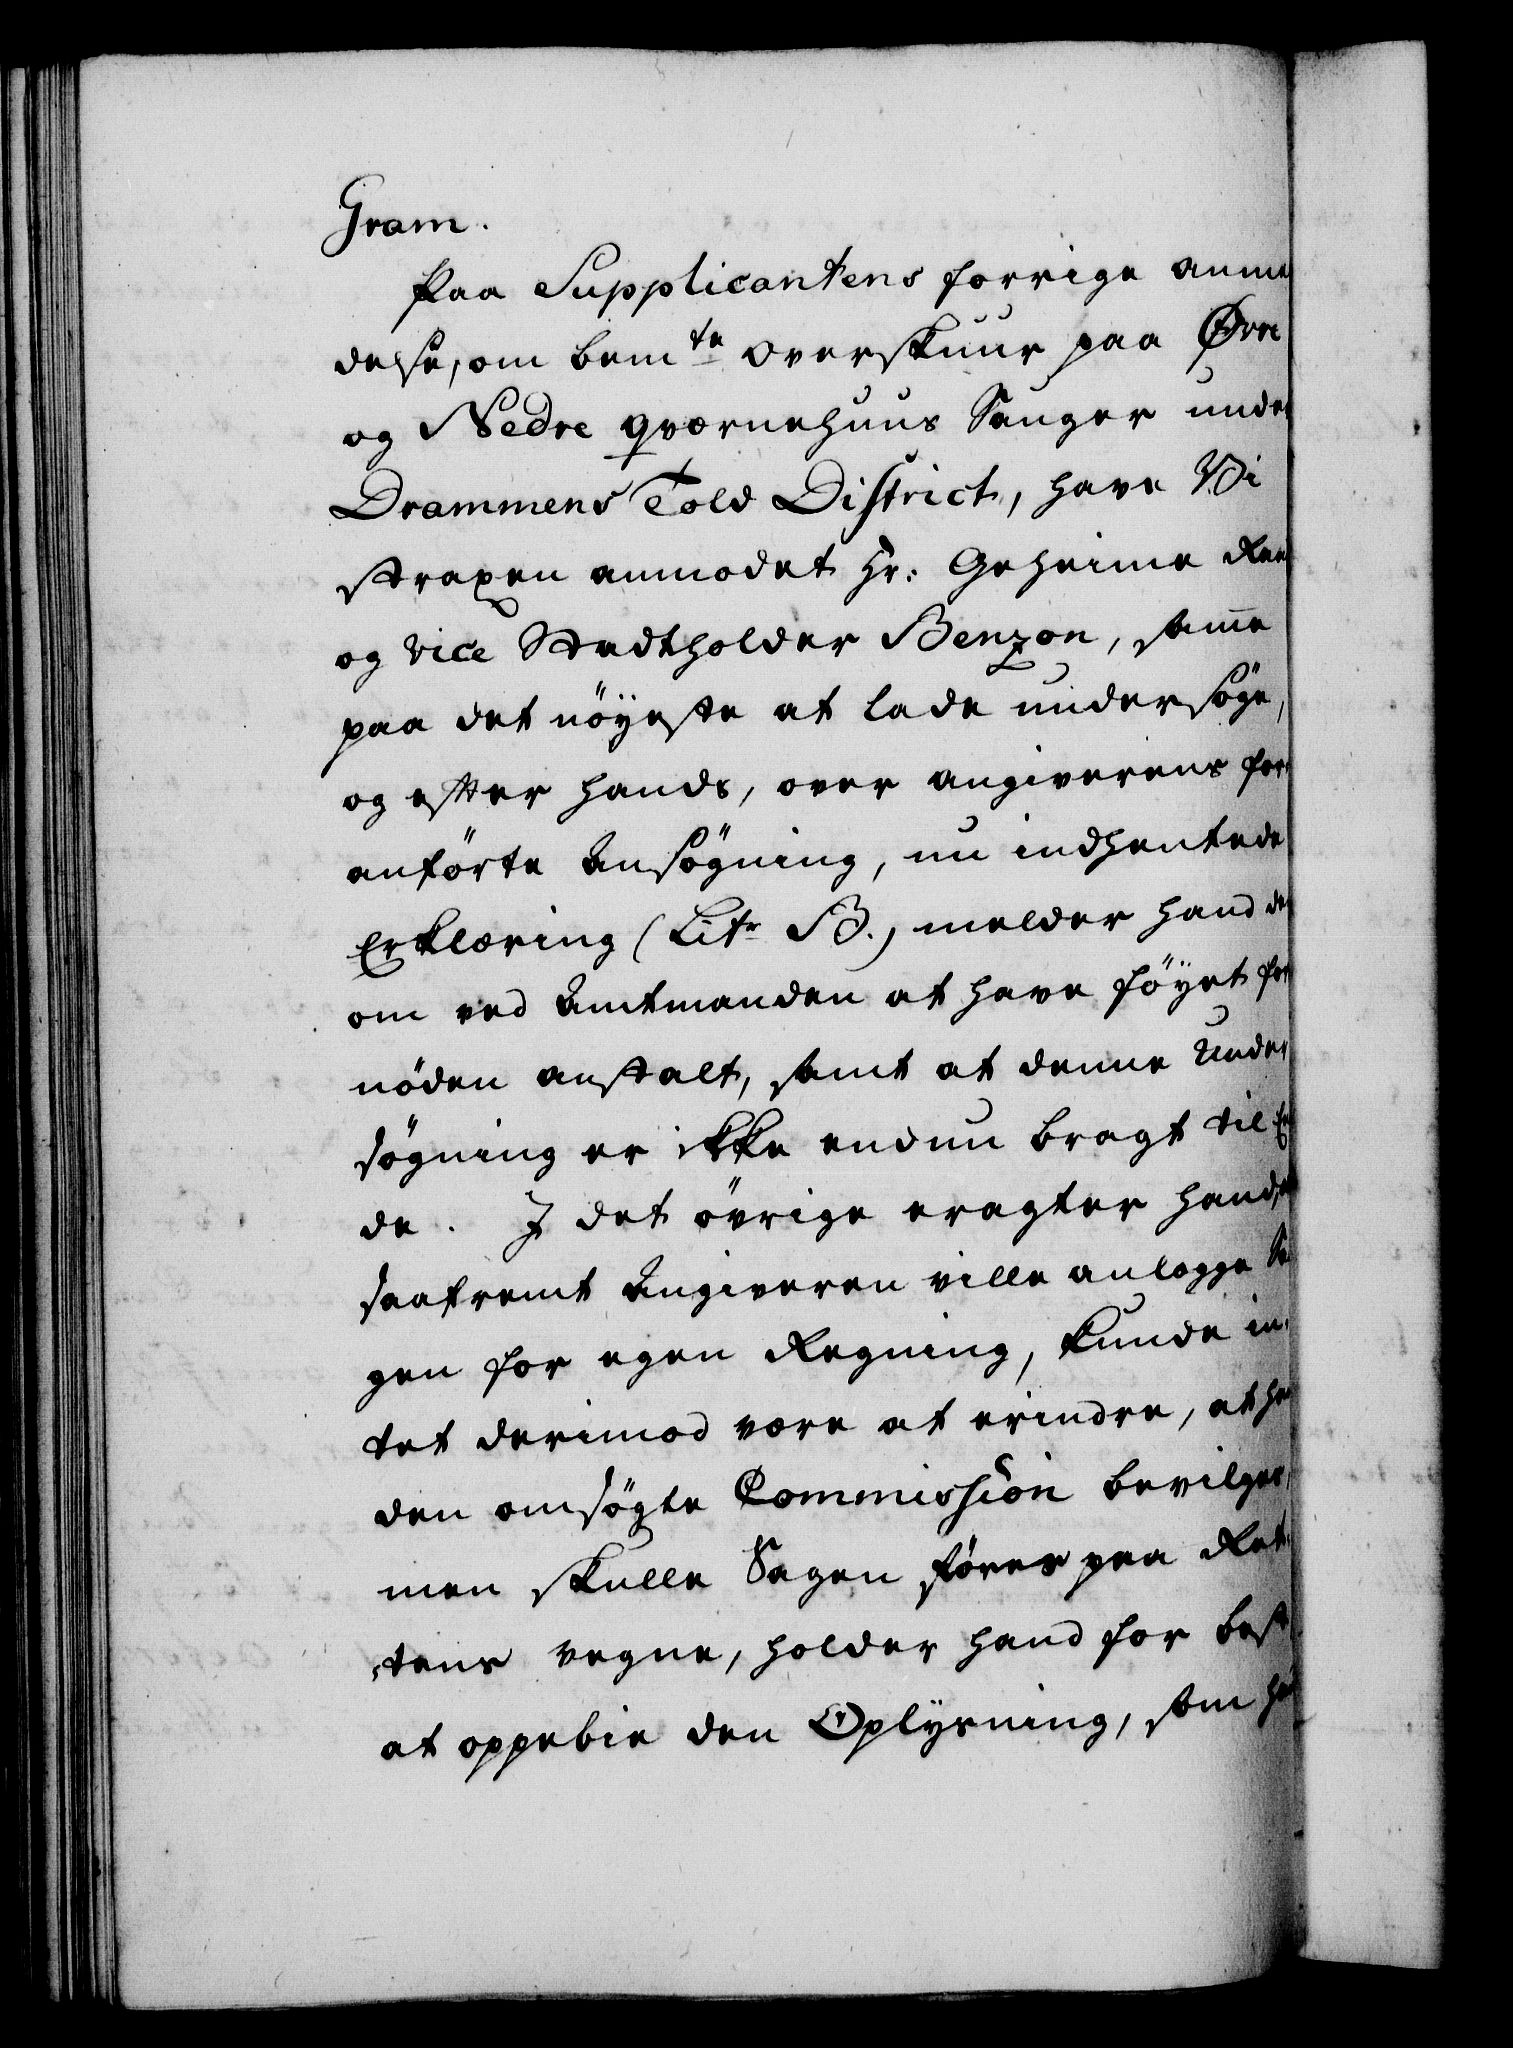 Gram.
Paa Supplicantens forrige anme
delse, om bemte overskuur paa Øvre
og Nedre qværnehuus Sauger under
Drammens Told District, have Vi
straxen anmodet Hr: Geheime Raa
og vice Stadtholder Benzon, samme
paa det nöyeste at lade undersöge,
og efter hands, over angiverens for
anförte Ansögning, nu indhentede
Erklæring (Litr B.) melder hand der
om ved Amtmanden at have föyet for
nöden anstalt, samt at denne Under
sögning er ikke endnu bragt til En
de. I det övrige eragter hand, at
saafremt Angiveren ville anlægge Sa
gen for egen Regning, kunde in¬
tet derimod være at erindre, at her
den omsögte Commission bevilges,
men skulle Sagen föres paa Ret¬
tens vegne, holder hand for best
at oppebie den Oplysning, som han